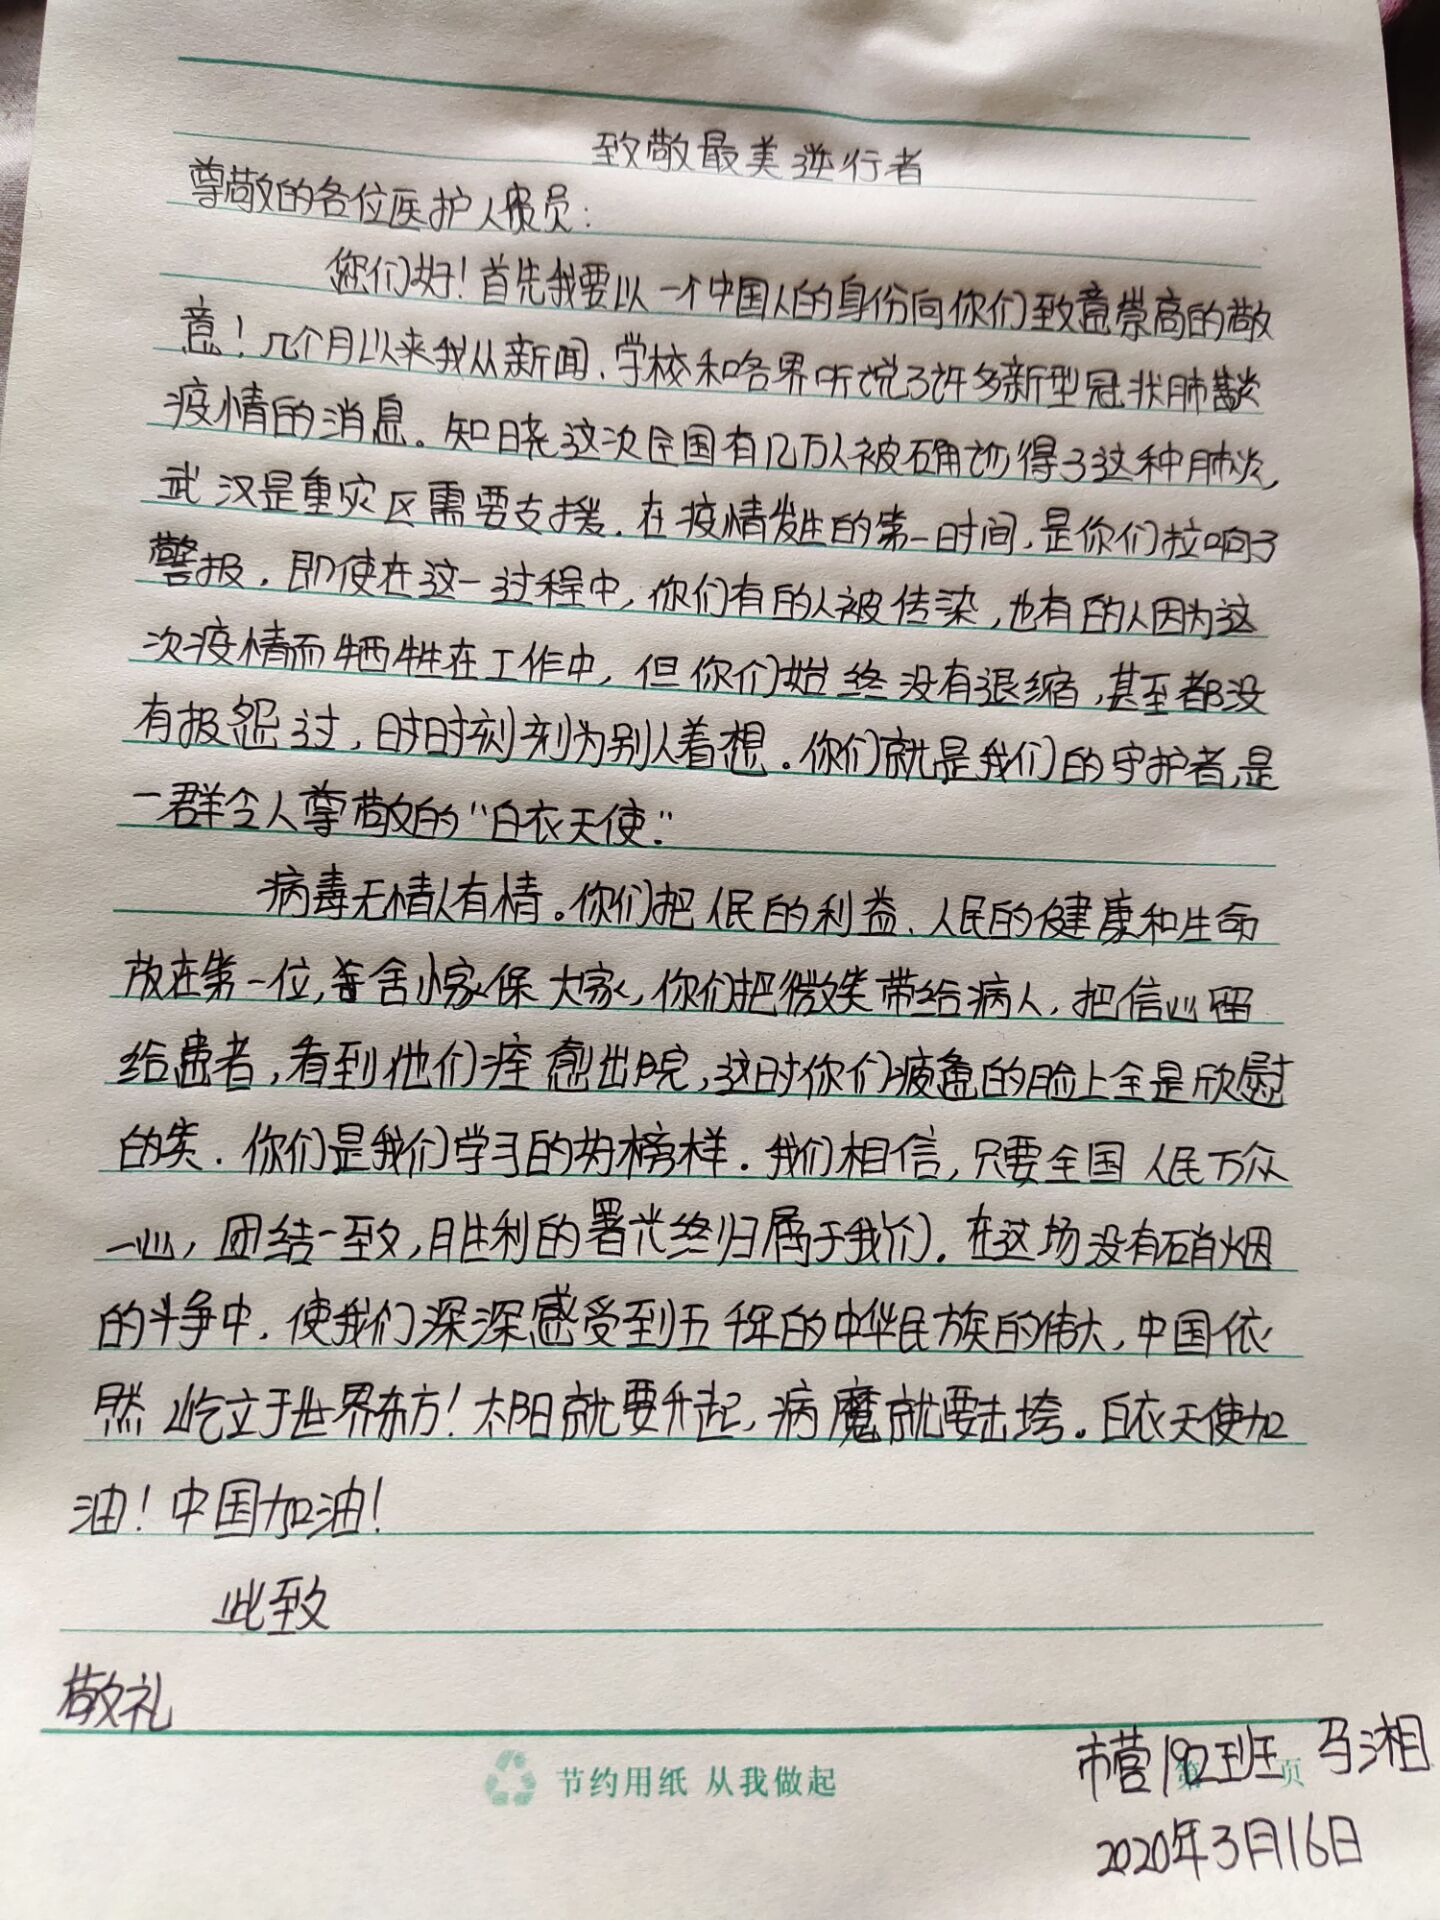 致敬最美逆行者
尊敬的各位医护人员：
您们好！首先我要以一个中国人的身份向你们致意崇高的敬
意！几个月以来我从新闻、学校和各界听说了许多新型冠状肺炎
疫情的消息。知晓这次全国有几万人被确诊得了这种肺炎，
武汉是重灾区需要支援．在疫情发生的第一时间，是你们拉响了
警报．即使在这一过程中，你们有的人被传染，也有的人因为这
次疫情而牺牲在工作中，但你们始终没有退缩，甚至都没
有报怨过，时时刻刻为别人着想。你们就是我们的守护者，是
一群令人尊敬的“白衣天使．”
病毒无情人有情。你们把人民的利益、人民的健康和生命
放在第一位，舍小家保大家，你们把微笑带给病人，把信心留
给患者，看到他们痊愈出院，这时你们疲惫的脸上全是欣慰
的笑．你们是我们学习的好榜样．我们相信，只要全国人民万众
一心，团结一致，胜利的署光终归属于我们．在这场没有硝烟
的斗争中．使我们深深感受到五千年的中华民族的伟大，中国依
然屹立于世界东方！太阳就要升起，病魔就要击垮。白衣天使加
油！中国加油！
此致
敬礼
市营1902班 马湘
2020年3月16日
节约用纸 从我做起
第 页